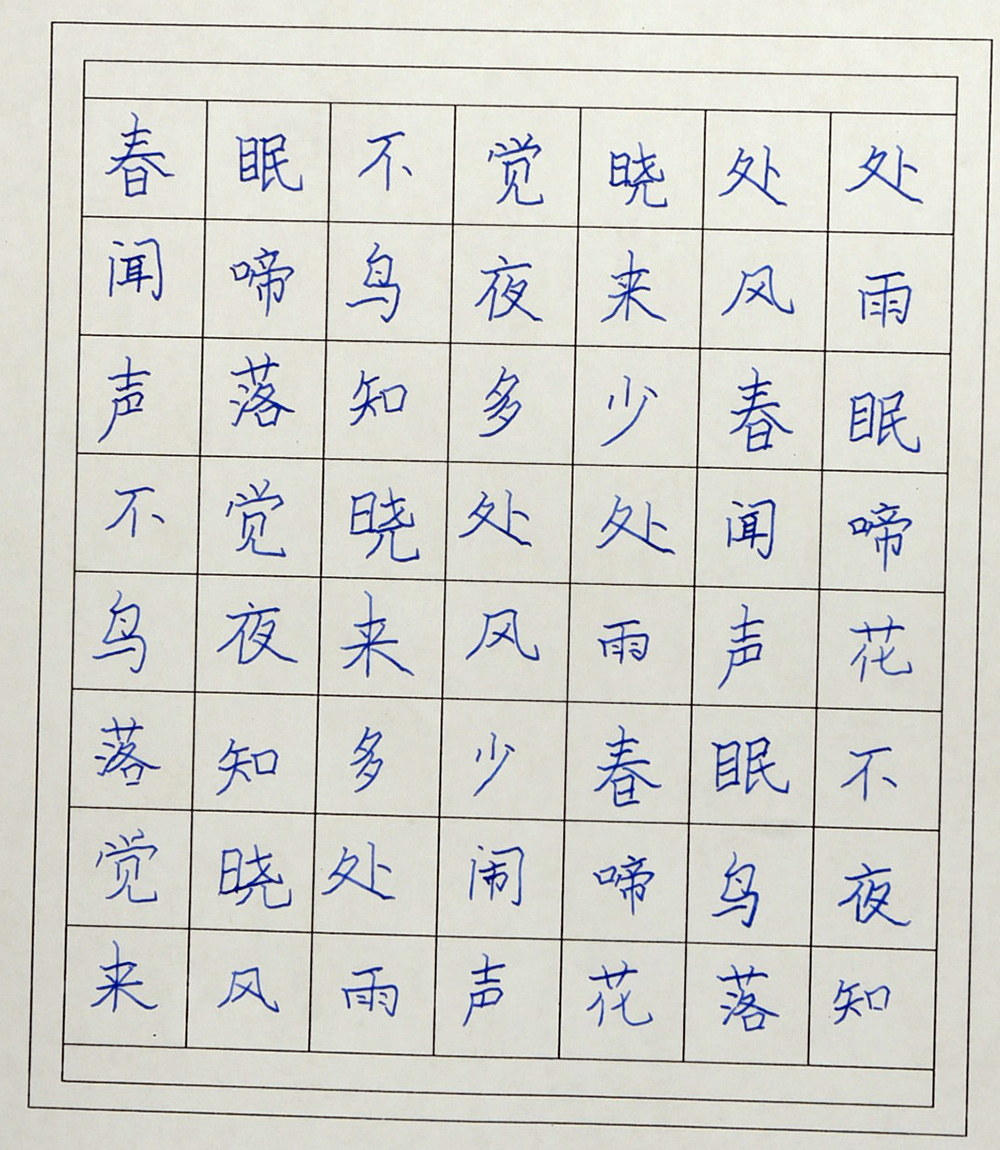 春眠不觉晓处处
闻啼鸟夜来风雨
声落知多少春眠
不觉晓处处闻啼
鸟夜来风雨声花
落知多少春眠不
觉晓处闹啼鸟夜
来风雨声花落知